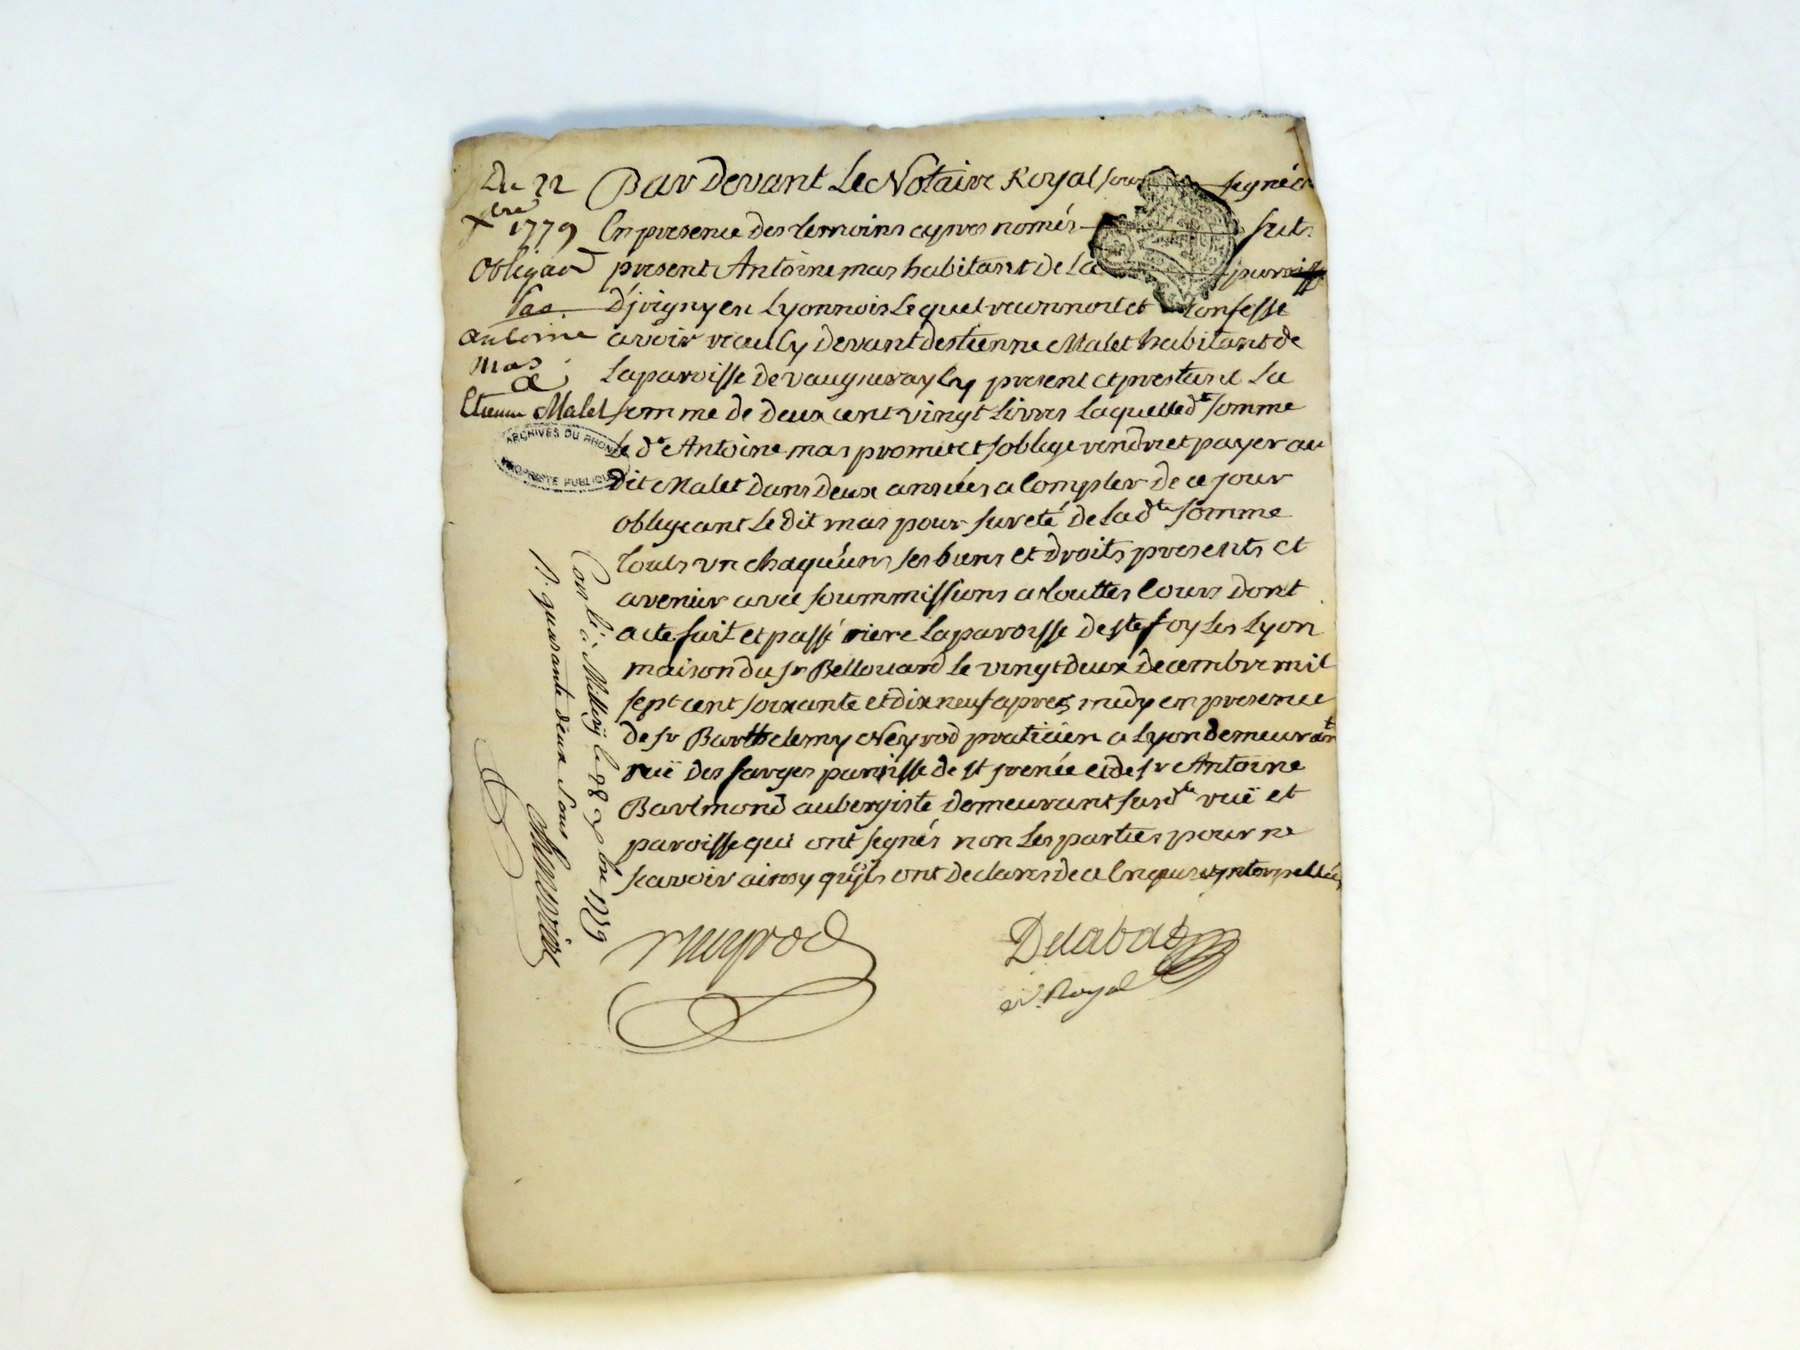 Du 22
xbre 1779
Obligaon
Par
Antoine
mas
a
Etienne Malet
ARCHIVES DU RHONE
PROPRIETE PUBLIQUE
Par Devant Le Notaire Royal sous segné et
En presence des temoins cyprès només fut
present Antoine mas habitant de La paroisse
D'jvigny en Lyonnois Lequel reconnoit et Confesse
avoir reçu Cy devant destienne Malet habitant de
La paroisse de vaugneray Cy present et prestant La
somme de deux cent vingt Livres Laquelle de somme
Le dt Antoine mas promet et soblige rendre et payer au
dit Malet dans deux années a Compter de ce jour
obligeant Le dit mas pour sureté de La dte somme
touts un chaqu'uns ses biens et droits presents et
avenir avec soummissions a touttes Cours dont
acte fait et passé riere La paroisse de ste foy Les Lyon
maison du sr Bellouard Le vingt deux decembre mil
sept cent soixante et dix neuf apres midy en presence
de sr Barthelemy Neyrod praticien a Lyon demeurant
ruë des farges paroisse de st jrenée et de sr Antoine
Barlmond aubergiste demeurant susde ruë et
paroisse qui ont segnés non Les parties pour ne
scavoir ainsy qu'ils ont declarés de ce Enquis et jnterpellés
Neyrod
Delabat
nre Royal
Conlé à Millery le 28 xbre 1779
R. quarante deux sous